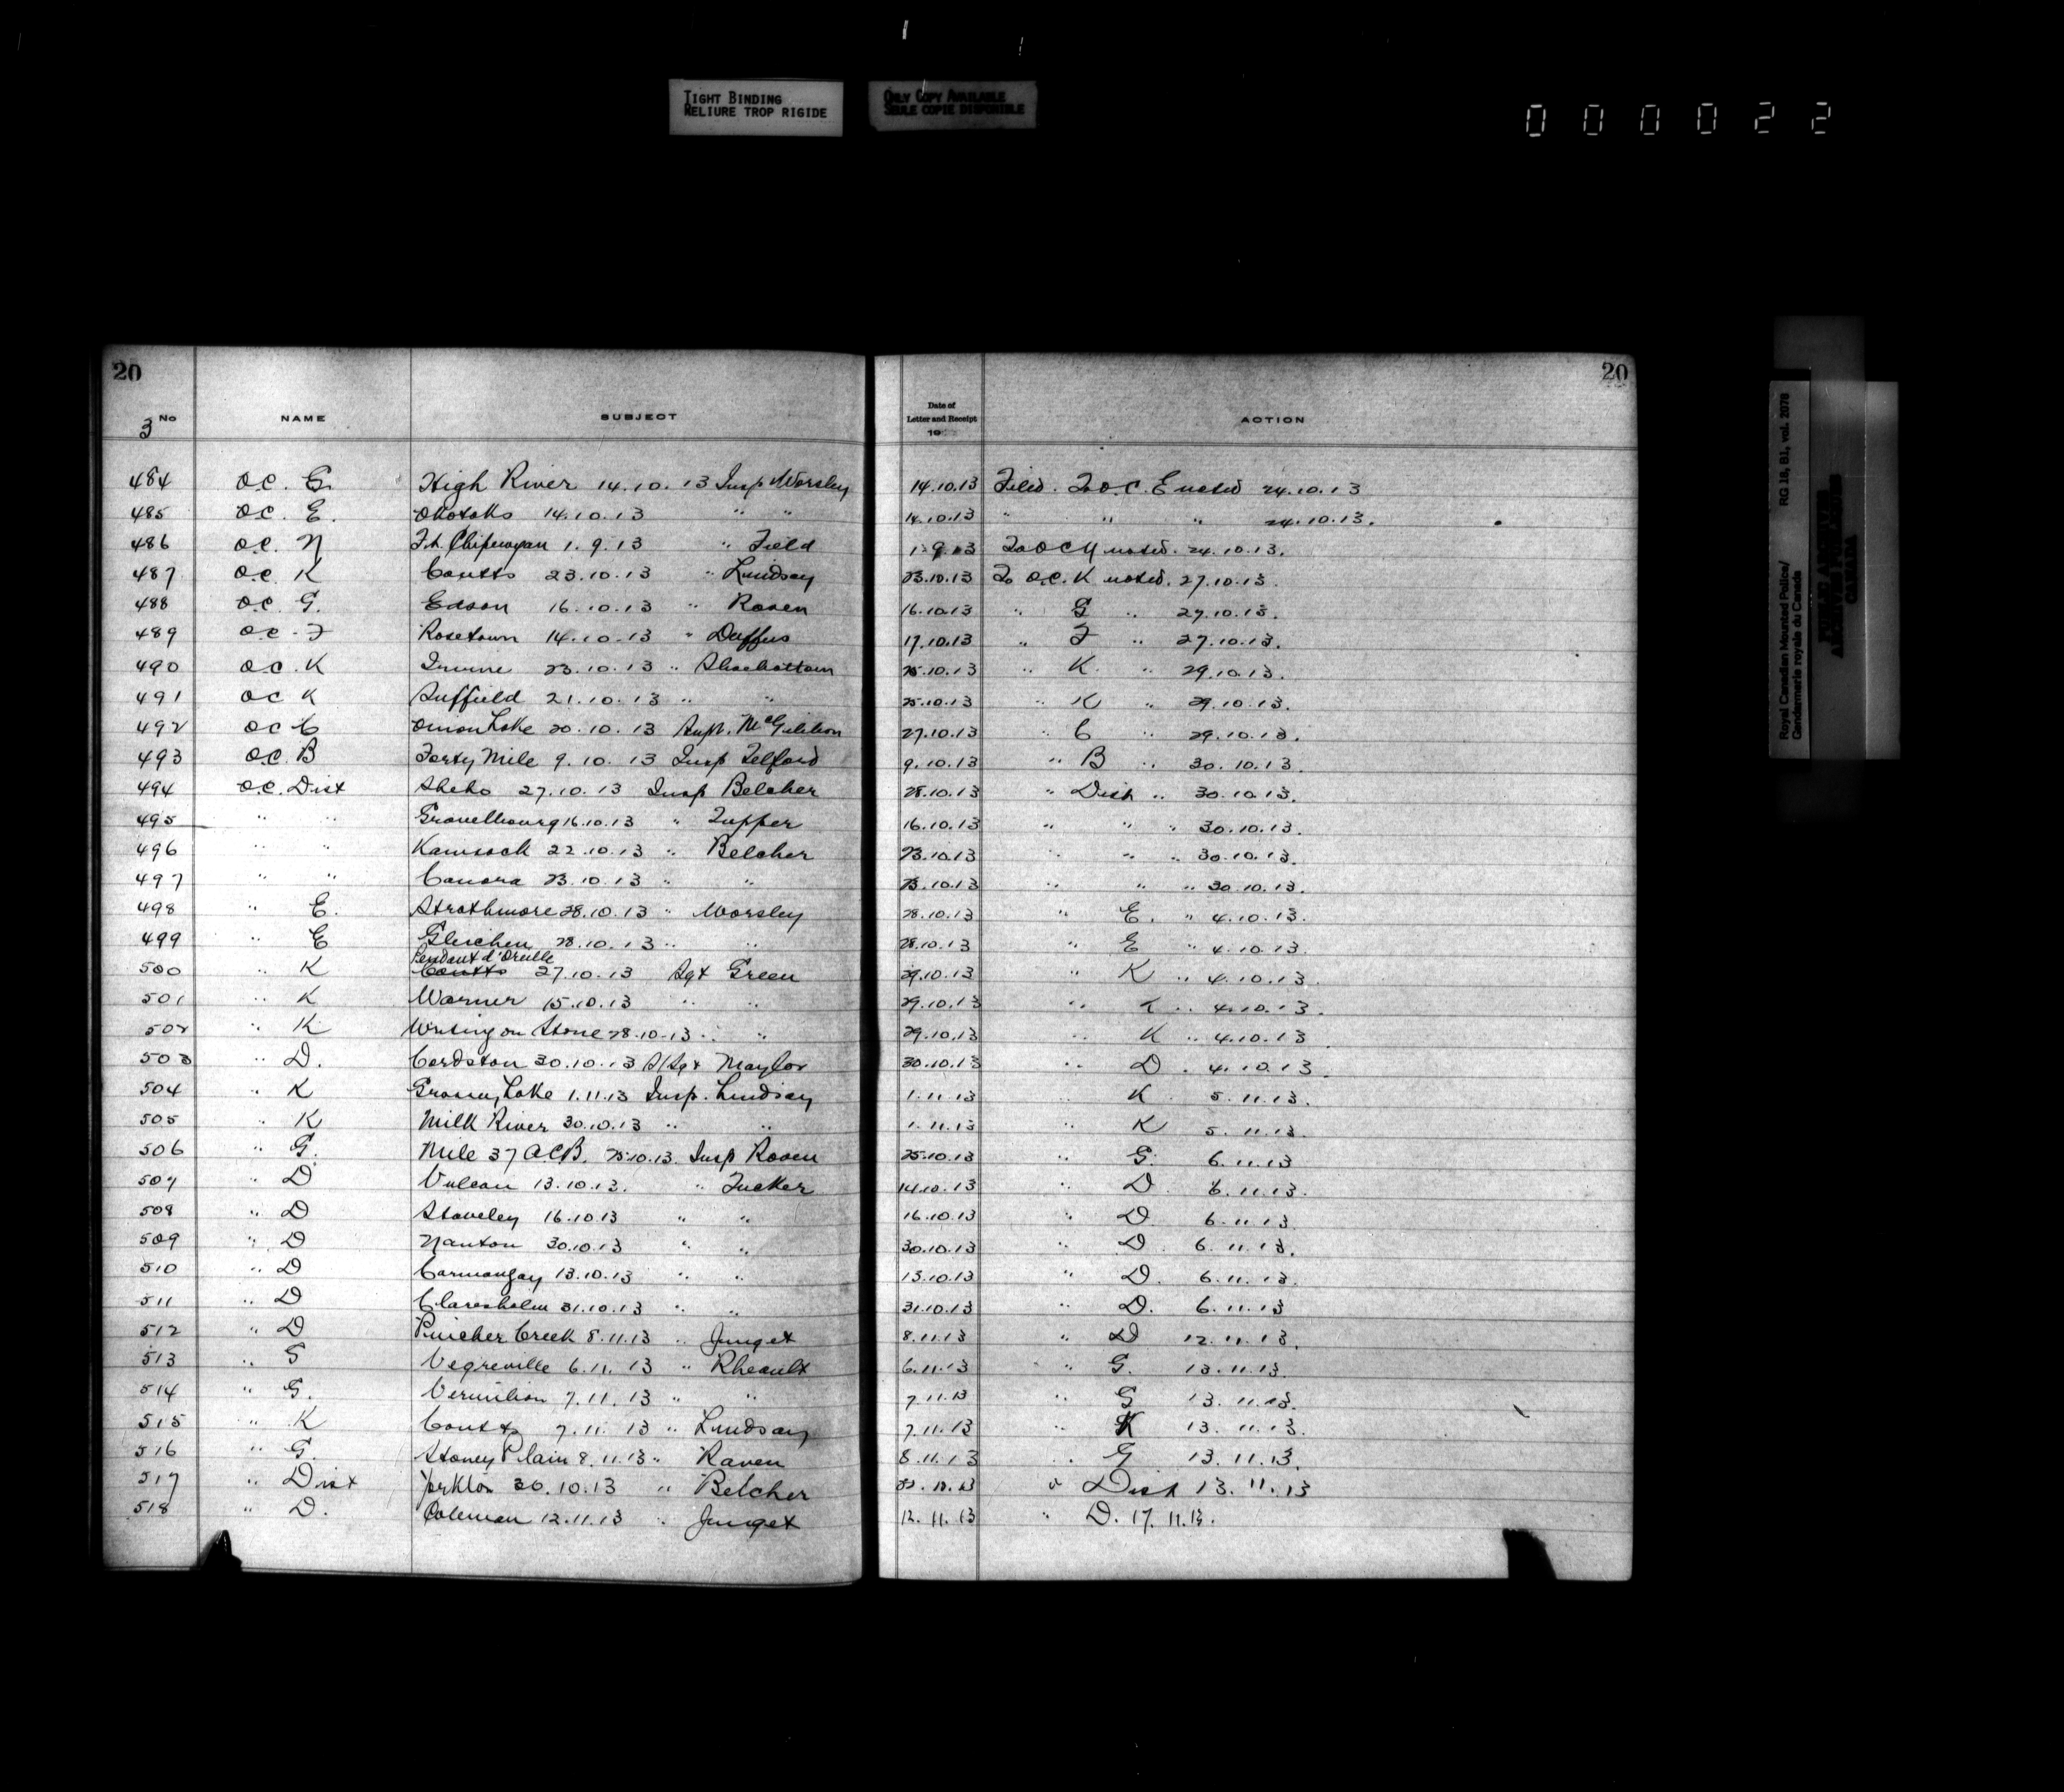 TIGHT BINDING
RELIURE TROP RIGIDE
ONLY COPY AVAILABLE
SEULE COPIE DISPONIBLE
000022
20 20
3 No NAME SUBJECT Date of Letter and Receipt 19 ACTION
484 O.C. G. High River 14.10.13 Insp Worsley 14.10.13 Filed. To O.C. E noted 24.10.13
485 O.C. E. Okotoks 14.10.13 " " 14.10.13 " " " 24.10.13.
486 O.C. N Ft. Chipewyan 1.9.13 " Field 1.9.13 To O C N noted. 24.10.13.
487 O.C. K Coutts 23.10.13 " Lindsay 23.10.13 To O.C. K noted. 27.10.13.
488 O.C. G. Edson 16.10.13 " Raven 16.10.13 " G " 27.10.13.
489 O.C. F Rosetown 14.10.13 " Duffus 17.10.13 " F " 27.10.13.
490 O.C. K Irvine 23.10.13 " Shoebottom 25.10.13 " K. " 29.10.13.
491 O C K Suffield 21.10.13 " " 25.10.13 " K " 29.10.13.
492 O C C Onion Lake 20.10.13 Supt. McGibbon 27.10.13 " C " 29.10.13.
493 O.C. B Forty Mile 9.10.13 Insp Telford 9.10.13 " B " 30.10.13.
494 O.C. Dist Sheho 27.10.13 Insp Belcher 28.10.13 " Dist " 30.10.13.
495 " " Gravelbourg 16.10.13 " Tupper 16.10.13 " " " 30.10.13.
496 " " Kamsack 22.10.13 " Belcher 23.10.13 " " " 30.10.13.
497 " " Canora 23.10.13 " " 23.10.13 " " " 30.10.13.
498 " E. Strathmore 28.10.13 " Worsley 28.10.13 " E. " 4.10.13.
499 " E Gleichen 28.10.13 " " 28.10.13 " E " 4.10.13.
Pendant d'Oreille
500 " K Coutts 27.10.13 Sgt Green 29.10.13 " K " 4.10.13.
501 " K Warner 15.10.13 " " 29.10.13 " K " 4.10.13.
502 " K Writing on Stone 28.10.13 " " 29.10.13 " K " 4.10.13.
503 " D. Cardston 30.10.13 S/Sgt Maylor 30.10.13 " D. 4.10.13.
504 " K Grassy Lake 1.11.13 Insp. Lindsay 1.11.13 " K 5.11.13.
505 " K Milk River 30.10.13 " " 1.11.13 " K 5.11.13.
506 " G. Mile 37 A.C.B. 25.10.13. Insp Raven 25.10.13 " G. 6.11.13
507 " D Vulcan 13.10.13. " Tucker 14.10.13 " D 6.11.13.
508 " D Staveley 16.10.13 " " 16.10.13 " D 6.11.13
509 " D Nanton 30.10.13 " " 30.10.13 " D 6.11.13.
510 " D Carmangay 13.10.13 " " 13.10.13 " D. 6.11.13.
511 " D Claresholm 31.10.13 " " 31.10.13 " D. 6.11.13
512 " D Pincher Creek 8.11.13 " Junget 8.11.13 " D 12.11.13.
513 " G Vegreville 6.11.13 " Rheault 6.11.13 " G. 13.11.13.
514 " G. Vermilion 7.11.13 " " 7.11.13 " G 13.11.13.
515 " K Coutts 7.11.13 " Lindsay 7.11.13 " K 13.11.13.
516 " G. Stoney Plain 8.11.13 " Raven 8.11.13 " G 13.11.13.
517 " Dist Yorkton 30.10.13 " Belcher " Dist 13.11.13
518 " D. Coleman 12.11.13 " Junget 12.11.13 " D. 17.11.13.
Royal Canadian Mounted Police/ RG 18, B1, vol. 2078
Gendarmerie royale du Canada
PUBLIC ARCHIVES
ARCHIVES PUBLIQUES
CANADA